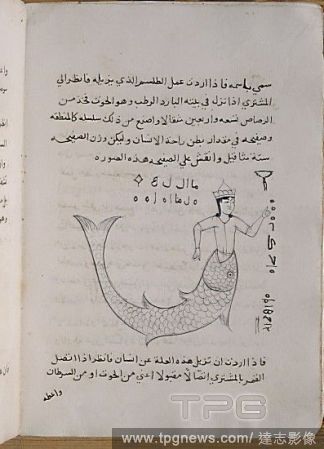 سمي باسمه فاذا اردت عمل الطلسم الذي يزيله فانظر الى
المشتري اذا نزل في بيته البارد الرطب وهو الحوت فخذ من
الرصاص تسعه واربعين مثقالا واصنع من ذلك سلسله كالمنطقه
وصفيحه في مقدار بطن راحة الانسان وليكن وزن الصفيحه
ستة مثاقيل وانقش على الصفيحه هذه الصوره
فاذا اردت ان تزيل هذه العلة عن انسان فانظر اذا اتصل
القمر بالمشتري اتصالا مقبولا اعني من الحوت او من السرطان
واعطه
TPG
www.tpgnews.com/達志影像